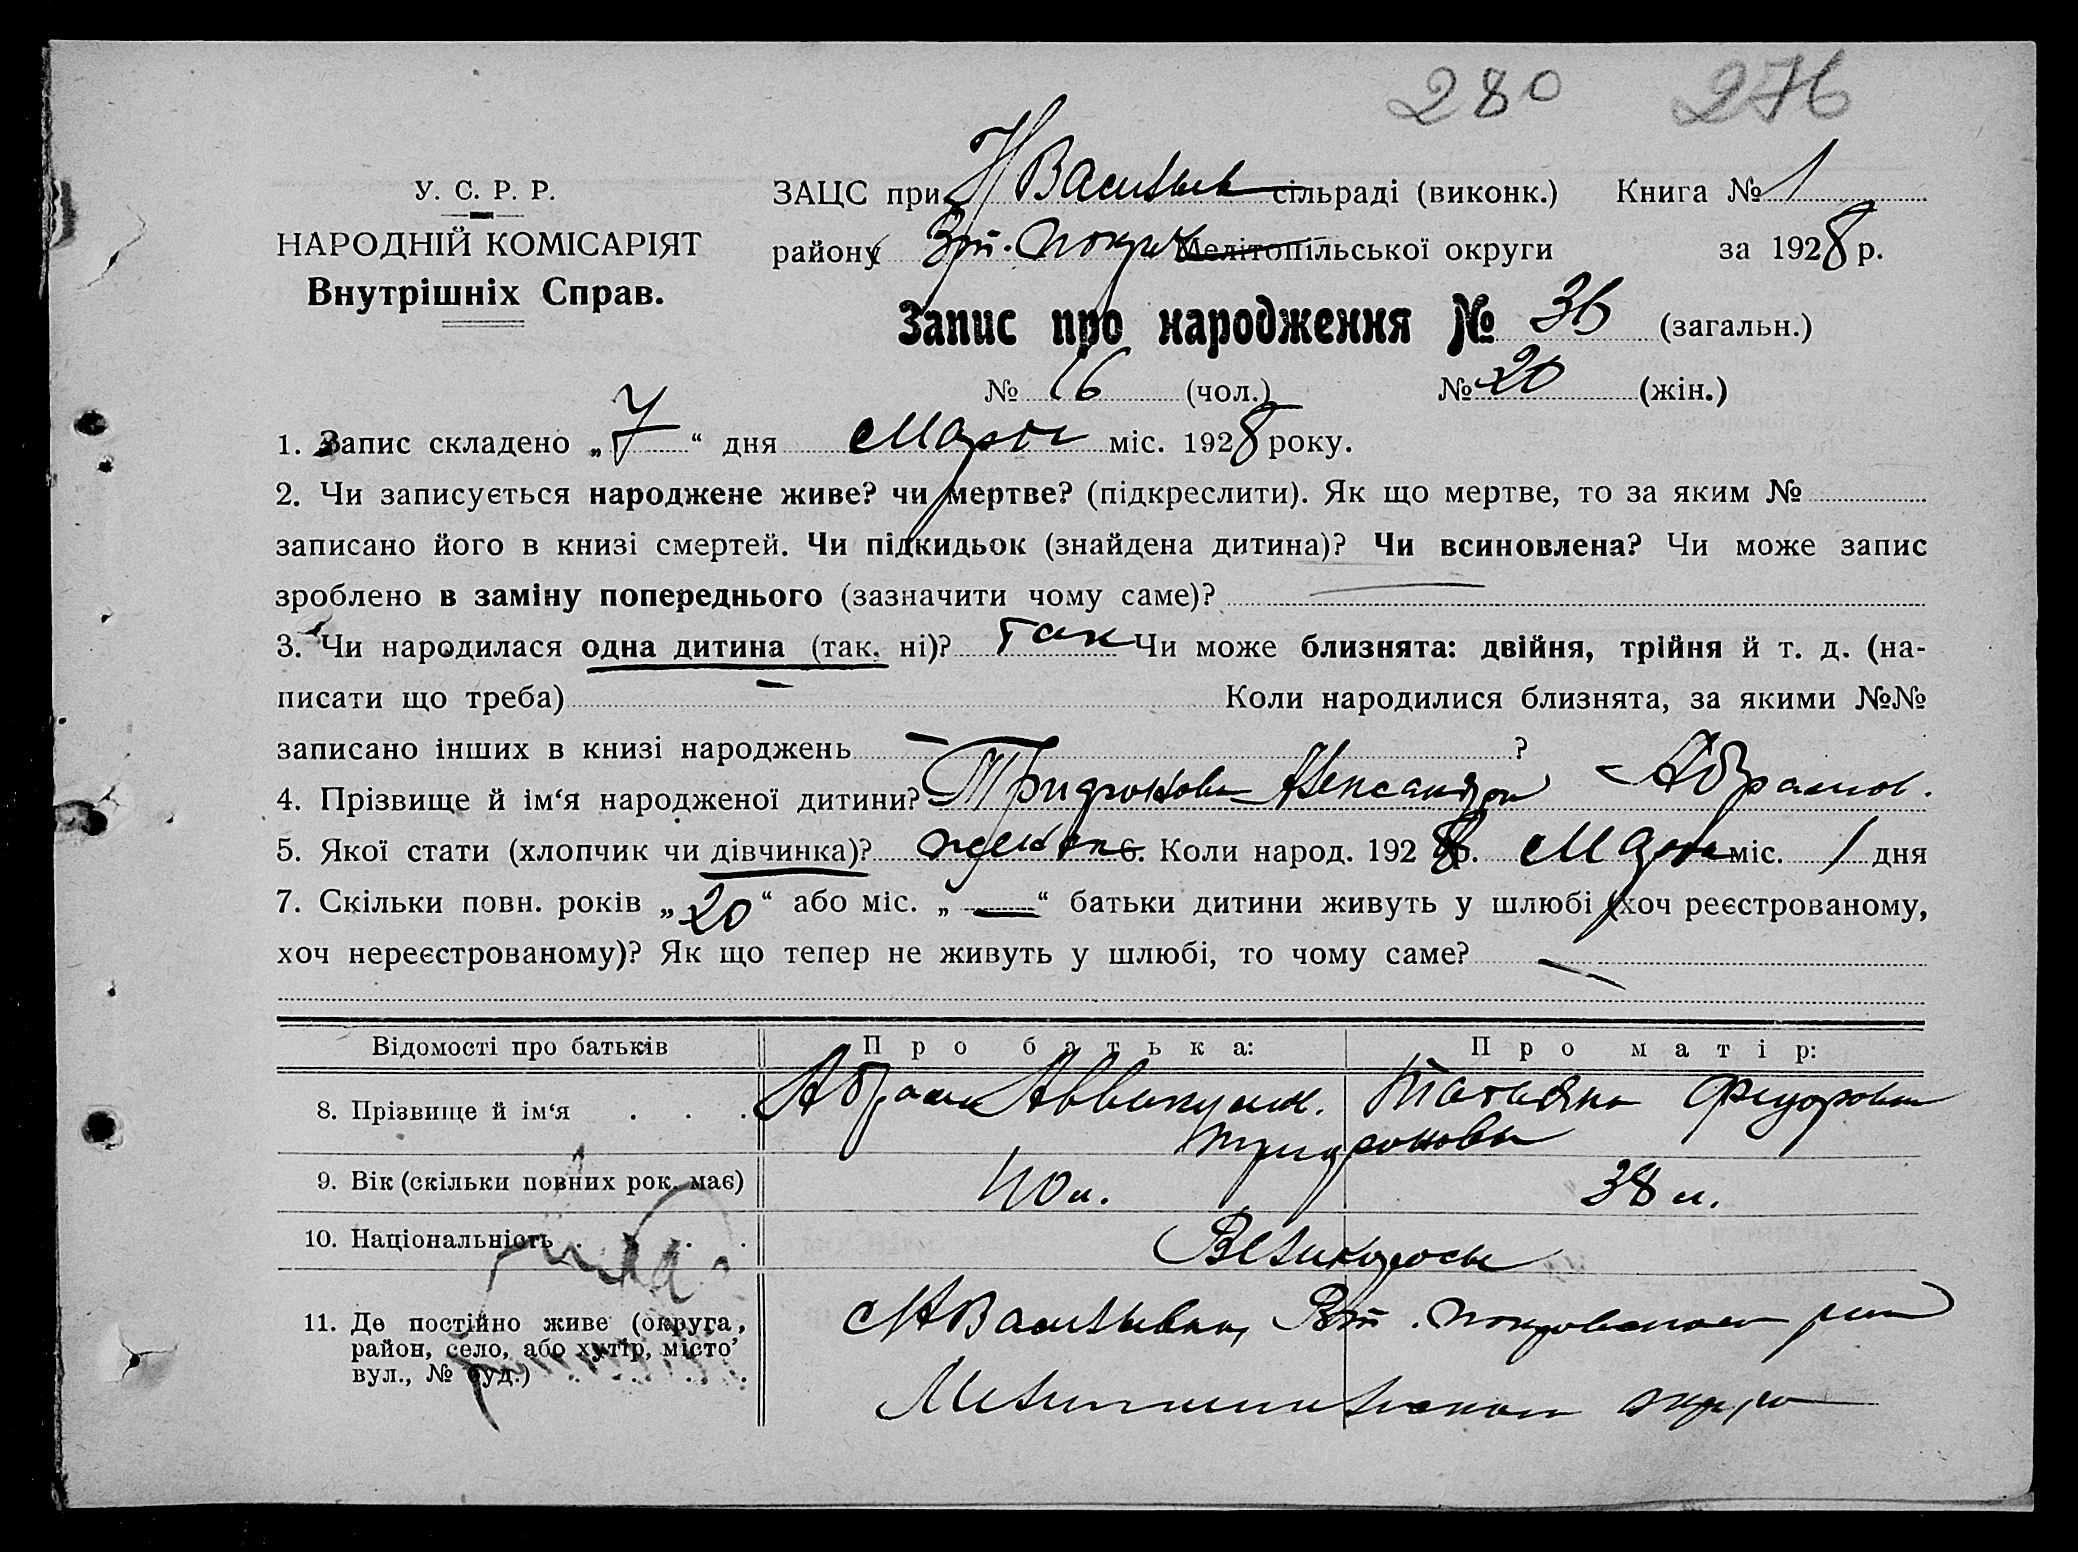 280 276
У. С. Р. Р.
НАРОДНІЙ КОМІСАРІЯТ
Внутрішніх Справ.
ЗАЦС при Н Васильев сільраді (виконк.) Книга № 1
району Вт. Покр Мелітопільської округи за 1928 р.
Запис про народження № 36 (загальн.)
№ 16 (чол.) № 20 (жін.)
1. Запис складено „7“ дня Марта міс. 1928 року.
2. Чи записується народжене живе? чи мертве? (підкреслити). Як що мертве, то за яким №
записано його в книзі смертей. Чи підкидьок (знайдена дитина)? Чи всиновлена? Чи може запис
зроблено в заміну попереднього (зазначити чому саме)?
3. Чи народилася одна дитина (так, ні)? так Чи може близнята: двійня, трійня й т. д. (на-
писати що треба) — Коли народилися близнята, за якими №№
записано інших в книзі народжень — ?
4. Прізвище й ім‘я народженої дитини? Тридронова Александра Абрамов.
5. Якої стати (хлопчик чи дівчинка)? женск 6. Коли народ. 1928 р. Марта міс. 1 дня
7. Скільки повн. років „20“ або міс. „—“ батьки дитини живуть у шлюбі (хоч реєстрованому,
хоч нереєстрованому)? Як що тепер не живуть у шлюбі, то чому саме? —
Відомості про батьків Про батька: Про матір:
8. Прізвище й ім‘я . . . Абрам Аввакумов. Татьяна Федоровна
Тридроновы
9. Вік (скільки повних рок. має) 40 л. 38 л.
10. Національність . . . . Великоросы
11. Де постійно живе (округа,
район, село, або хутір, місто
вул., № буд.) . . . .
с Н Васильевка, Вт. Покровского рна
Мелитопольского округа